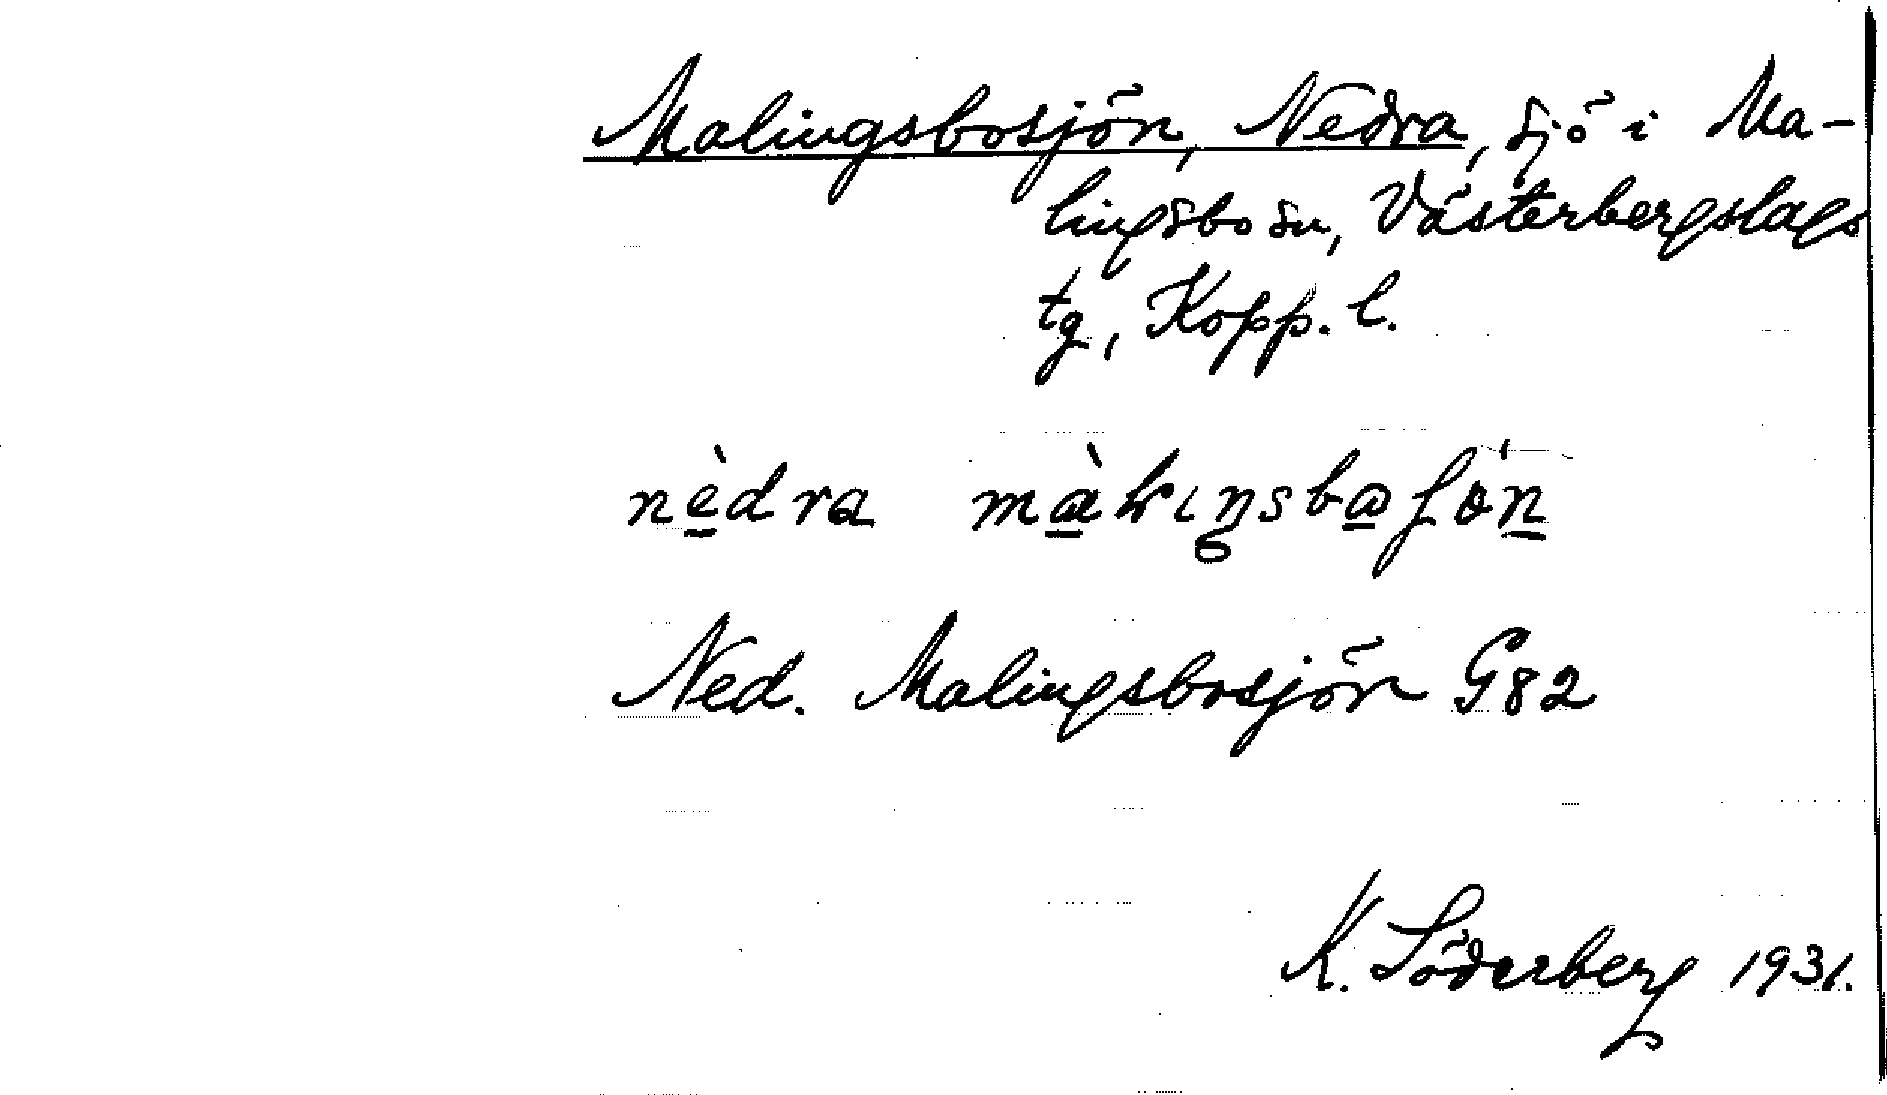 Malingsbosjön, Nedra, sjö i Ma-
lingsbo sn, Västerbergslags
tg, Kopp. l.
nèdra
Ned. Malingsbosjön G82
K. Söderberg 1931.